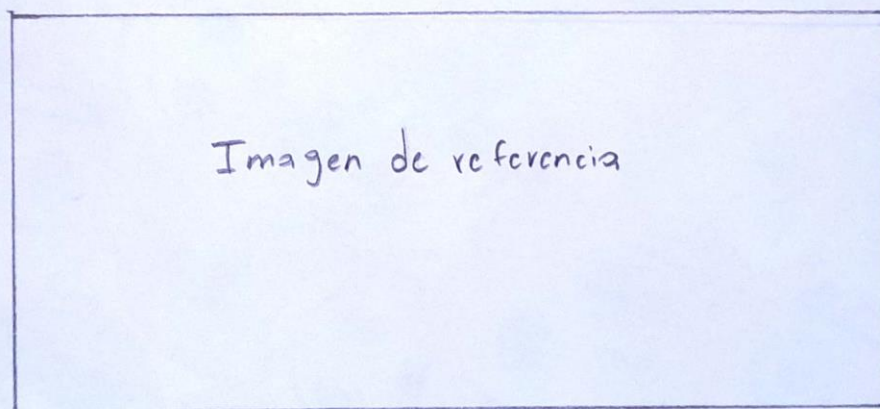 Imagen de referencia